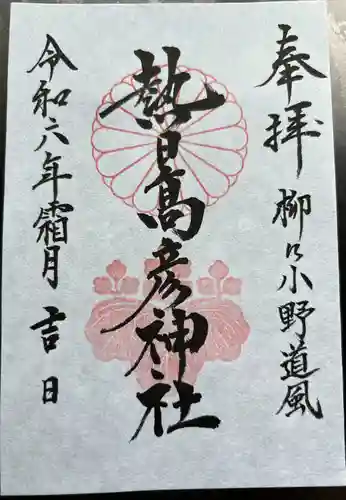 奉拝
柳に小野道風
熱日高彦神社
令和六年霜月吉日